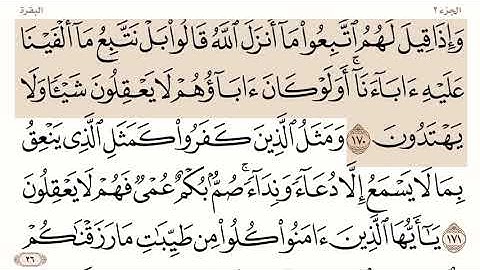 الجزء ٢ البقرة
وَإِذَا قِيلَ لَهُمُ ٱتَّبِعُوا۟ مَآ أَنزَلَ ٱللَّهُ قَالُوا۟ بَلْ نَتَّبِعُ مَآ أَلْفَيْنَا
عَلَيْهِ ءَابَآءَنَآ ۗ أَوَلَوْ كَانَ ءَابَآؤُهُمْ لَا يَعْقِلُونَ شَيْـًٔا وَلَا
يَهْتَدُونَ ١٧٠ وَمَثَلُ ٱلَّذِينَ كَفَرُوا۟ كَمَثَلِ ٱلَّذِى يَنْعِقُ
بِمَا لَا يَسْمَعُ إِلَّا دُعَآءً وَنِدَآءً ۚ صُمٌّۢ بُكْمٌ عُمْىٌ فَهُمْ لَا يَعْقِلُونَ
١٧١ يَـٰٓأَيُّهَا ٱلَّذِينَ ءَامَنُوا۟ كُلُوا۟ مِن طَيِّبَـٰتِ مَا رَزَقْنَـٰكُمْ
٢٦